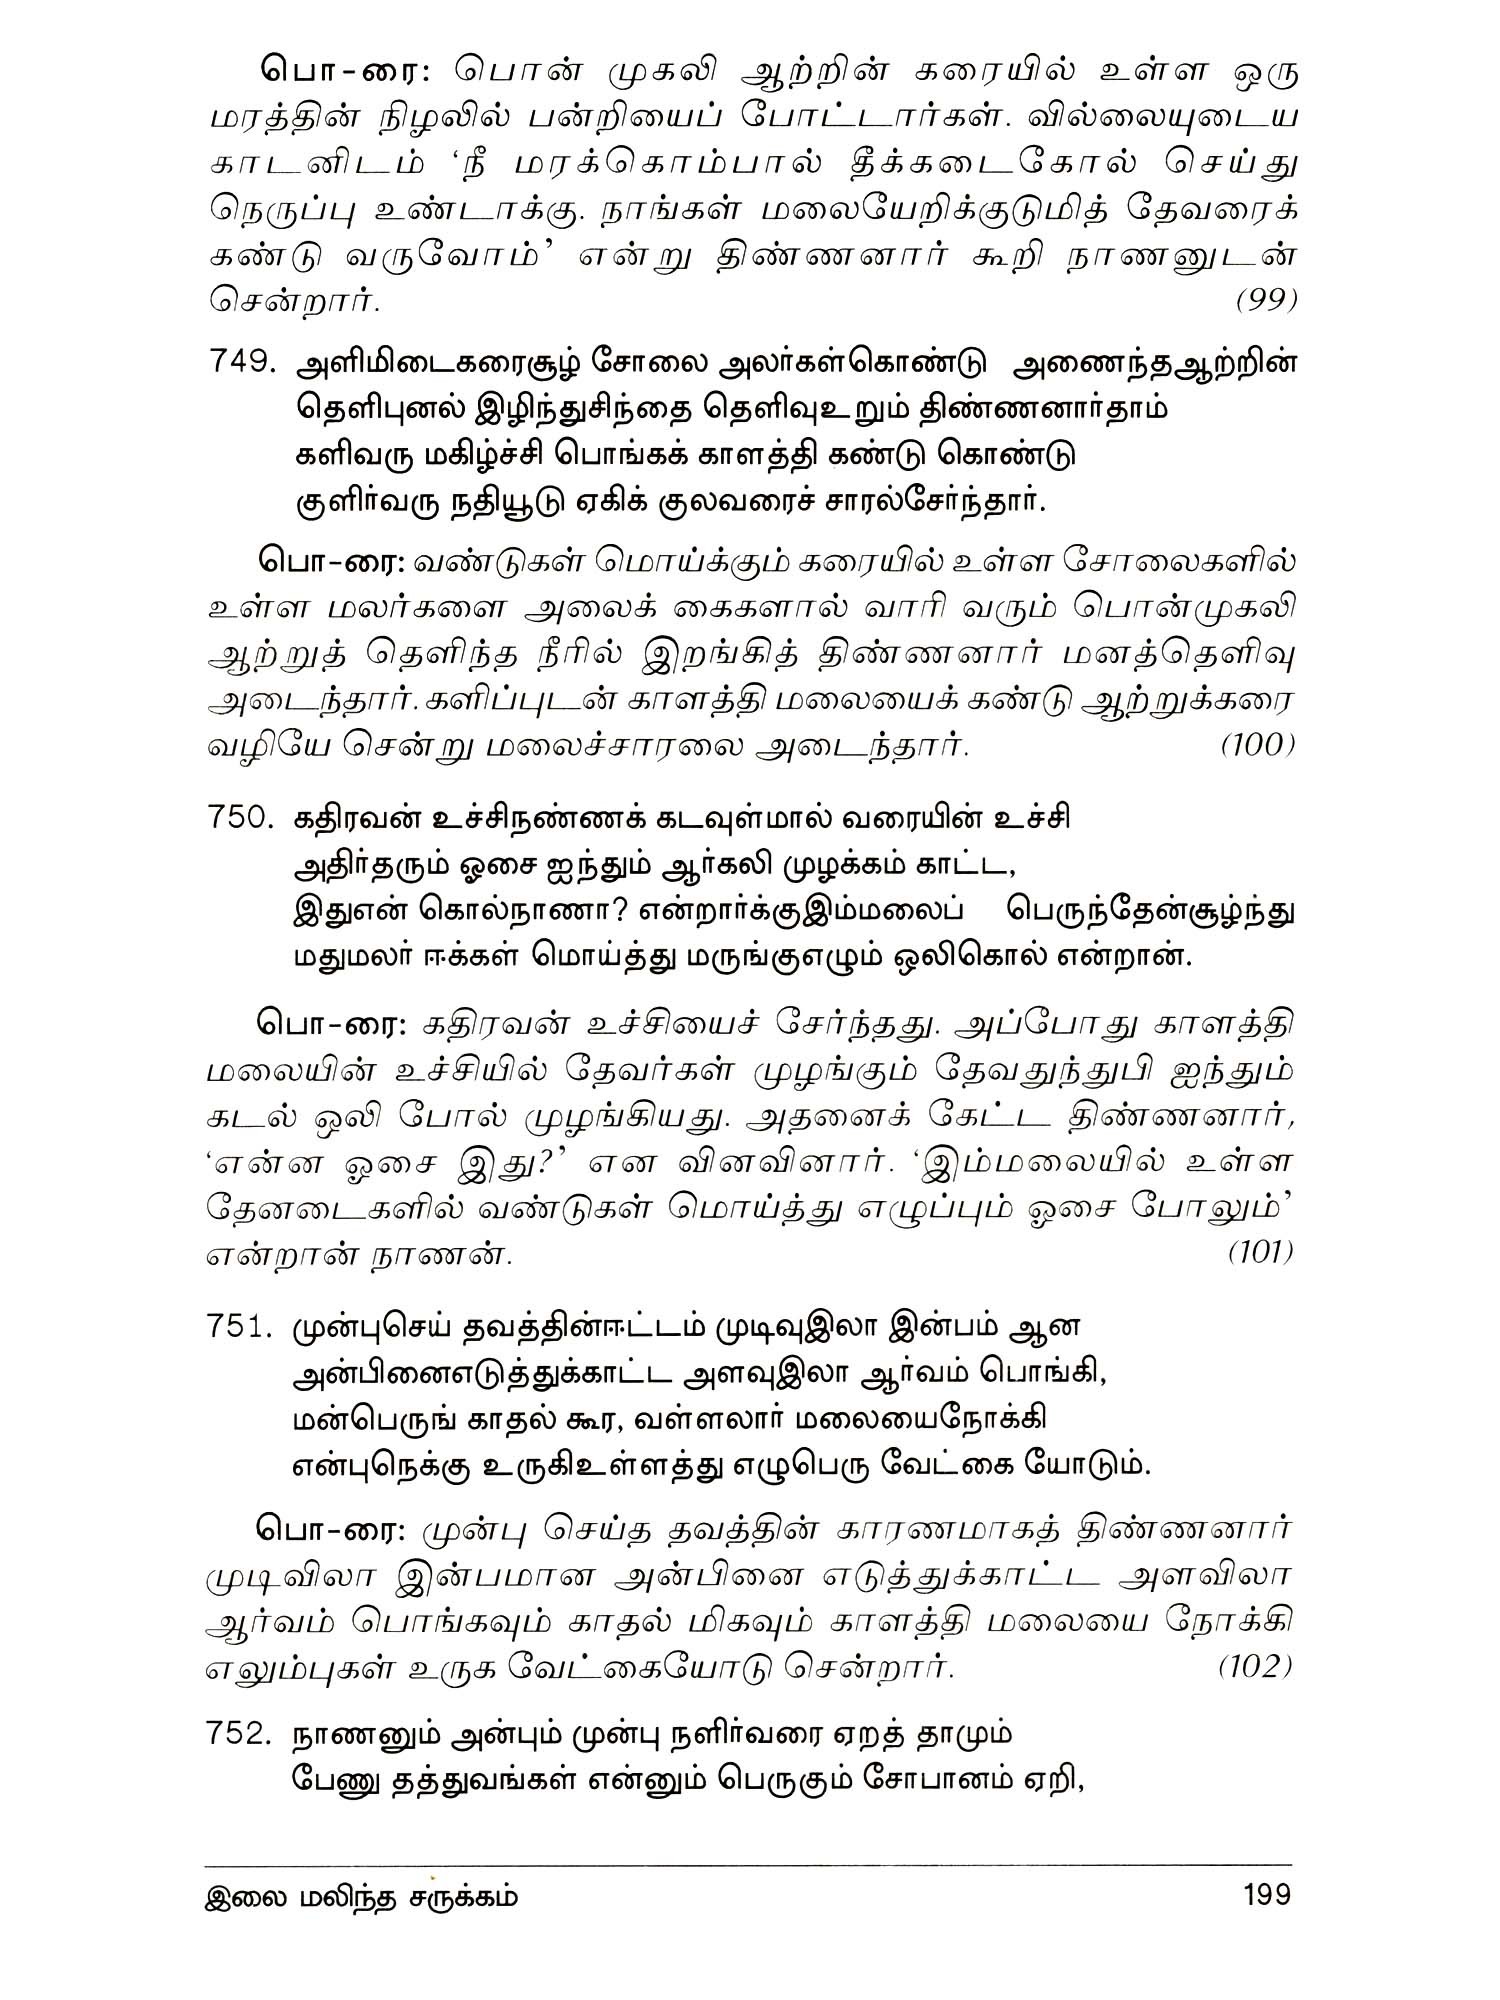 பொ-ரை: பொன் முகலி ஆற்றின் கரையில் உள்ள ஒரு
மரத்தின் நிழலில் பன்றியைப் போட்டார்கள். வில்லையுடைய
காடனிடம் ‘நீ மரக்கொம்பால் தீக்கடைகோல் செய்து
நெருப்பு உண்டாக்கு. நாங்கள் மலையேறிக்குடுமித் தேவரைக்
கண்டு வருவோம்’ என்று திண்ணனார் கூறி நாணனுடன்
சென்றார். (99)
749. அளிமிடைகரைசூழ் சோலை அலர்கள்கொண்டு அணைந்தஆற்றின்
தெளிபுனல் இழிந்துசிந்தை தெளிவுஉறும் திண்ணனார்தாம்
களிவரு மகிழ்ச்சி பொங்கக் காளத்தி கண்டு கொண்டு
குளிர்வரு நதியூடு ஏகிக் குலவரைச் சாரல்சேர்ந்தார்.
பொ-ரை: வண்டுகள் மொய்க்கும் கரையில் உள்ள சோலைகளில்
உள்ள மலர்களை அலைக் கைகளால் வாரி வரும் பொன்முகலி
ஆற்றுத் தெளிந்த நீரில் இறங்கித் திண்ணனார் மனத்தெளிவு
அடைந்தார். களிப்புடன் காளத்தி மலையைக் கண்டு ஆற்றுக்கரை
வழியே சென்று மலைச்சாரலை அடைந்தார். (100)
750. கதிரவன் உச்சிநண்ணக் கடவுள்மால் வரையின் உச்சி
அதிர்தரும் ஓசை ஐந்தும் ஆர்கலி முழக்கம் காட்ட,
இதுஎன் கொல்நாணா? என்றார்க்குஇம்மலைப் பெருந்தேன்சூழ்ந்து
மதுமலர் ஈக்கள் மொய்த்து மருங்குஎழும் ஒலிகொல் என்றான்.
பொ-ரை: கதிரவன் உச்சியைச் சேர்ந்தது. அப்போது காளத்தி
மலையின் உச்சியில் தேவர்கள் முழங்கும் தேவதுந்துபி ஐந்தும்
கடல் ஒலி போல் முழங்கியது. அதனைக் கேட்ட திண்ணனார்,
‘என்ன ஓசை இது?’ என வினவினார். ‘இம்மலையில் உள்ள
தேனடைகளில் வண்டுகள் மொய்த்து எழுப்பும் ஓசை போலும்’
என்றான் நாணன். (101)
751. முன்புசெய் தவத்தின்ஈட்டம் முடிவுஇலா இன்பம் ஆன
அன்பினைஎடுத்துக்காட்ட அளவுஇலா ஆர்வம் பொங்கி,
மன்பெருங் காதல் கூர, வள்ளலார் மலையைநோக்கி
என்புநெக்கு உருகிஉள்ளத்து எழுபெரு வேட்கை யோடும்.
பொ-ரை: முன்பு செய்த தவத்தின் காரணமாகத் திண்ணனார்
முடிவிலா இன்பமான அன்பினை எடுத்துக்காட்ட அளவிலா
ஆர்வம் பொங்கவும் காதல் மிகவும் காளத்தி மலையை நோக்கி
எலும்புகள் உருக வேட்கையோடு சென்றார். (102)
752. நாணனும் அன்பும் முன்பு நளிர்வரை ஏறத் தாமும்
பேணு தத்துவங்கள் என்னும் பெருகும் சோபானம் ஏறி,
இலை மலிந்த சருக்கம் 199